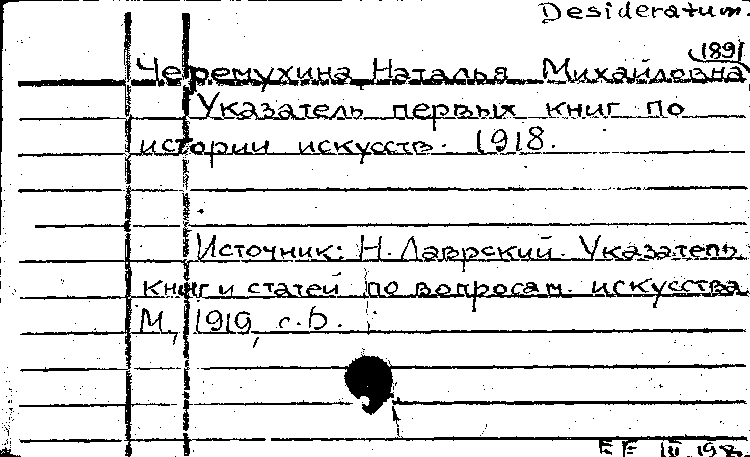 Desideratum.
(1891
Черемухина, Наталья Михайловна
Указатель первых книг по
истории искусств. 1918.
Источник: Н. Лаврский. Указатель
книг и статей по вопросам искусства
М., 1919, с.